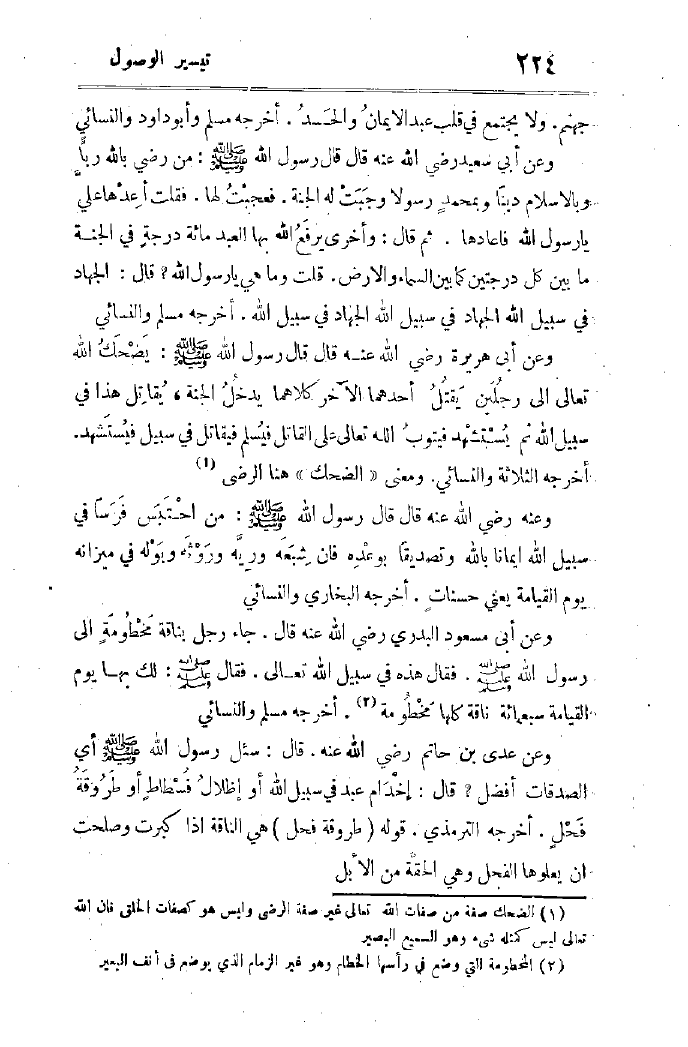 ٢٢٤ تيسير الوصول
جهنم. ولا يجتمع في قلب عبد الايمانُ والحَسدُ . أخرجه مسلم وأبو داود والنسائي
وعن أبي سعيد رضي الله عنه قال قال رسول الله ﷺ : من رضي بالله ربًّا
وبالاسلام دينًا وبمحمدٍ رسولا وجَبَتْ له الجنة . فعجبْتُ لها . فقلت أعِدْها علي
يارسول الله فاعادها . ثم قال : وأخرى يرفَعُ الله بها العبد مائة درجة في الجنـة
ما بين كل درجتين كما بين السماء والارض. قلت وما هي يارسول الله ? قال : الجهاد
في سبيل الله الجهاد في سبيل الله الجهاد في سبيل الله . أخرجه مسلم والنسائي
وعن أبي هريرة رضي الله عنـه قال قال رسول الله ﷺ : يَضْحَكُ الله
تعالى الى رجُلَين يَقتُلُ أحدهما الآخر كلاهما يدخلُ الجنة ، يُقاتِل هذا في
سبيل الله ثم يُسْتشْهد فيتوبُ الله تعالى على القاتل فيُسلم فيقاتل في سبيل فيُستَشهد.
أخرجه الثلاثة والنسائي. ومعنى « الضحك » هنا الرضى (١)
وعنه رضي الله عنه قال قال رسول الله ﷺ : من احْتَبَس فَرَسًا في
سبيل الله ايمانا بالله وتصديقًا بوعْدِه فان شِبَعَه ورِيَّه ورَوْثَه وبَوْله في ميزانه
يوم القيامة يعني حسنات . أخرجه البخاري والنسائي
وعن أبي مسعود البدري رضي الله عنه قال . جاء رجل بناقة مَخْطُومَةٍ الى
رسول الله ﷺ . فقال هذه في سبيل الله تعـالى . فقال ﷺ : لك بهـا يوم
القيامة سبعمائة ناقة كلها مَخْطُومة (٢) . أخرجه مسلم والنسائي
وعن عدى بن حاتم رضي الله عنه . قال : سئل رسول الله ﷺ أي
الصدقات أفضل ? قال : إخْدَام عبد في سبيل الله أو إظلالُ فُسْطاطٍ أو طَرُوقَةُ
فَحْلٍ . أخرجه الترمذي . قوله ( طروقة فحل ) هي الناقة اذا كبرت وصلحت
ان يعلوها الفحل وهي الحقّة من الأبل
(١) الضحك صفة من صفات الله تعالى غير صفة الرضى وليس هو كصفات الخلق فان الله
تعالى ليس كمثله شيء وهو السميع البصير
(٢) المخطومة التي وضع في رأسها الخطام وهو غير الزمام الذي يوضع في أنف البعير